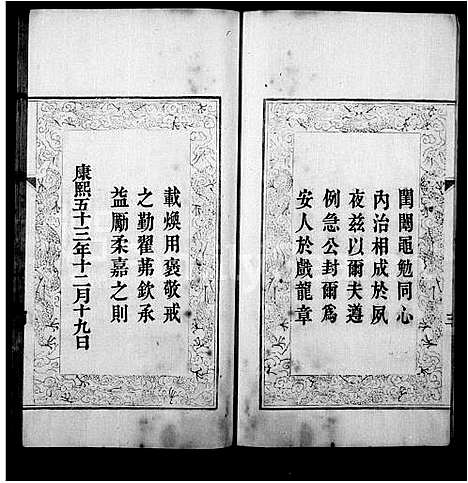 閨閫黽勉同心
內治相成於夙
夜兹以爾夫遵
例急公封爾爲
安人於戲龍章
載煥用褒敬戒
之勤翟茀欽承
益勵柔嘉之則
康熙五十三年十二月十九日
三